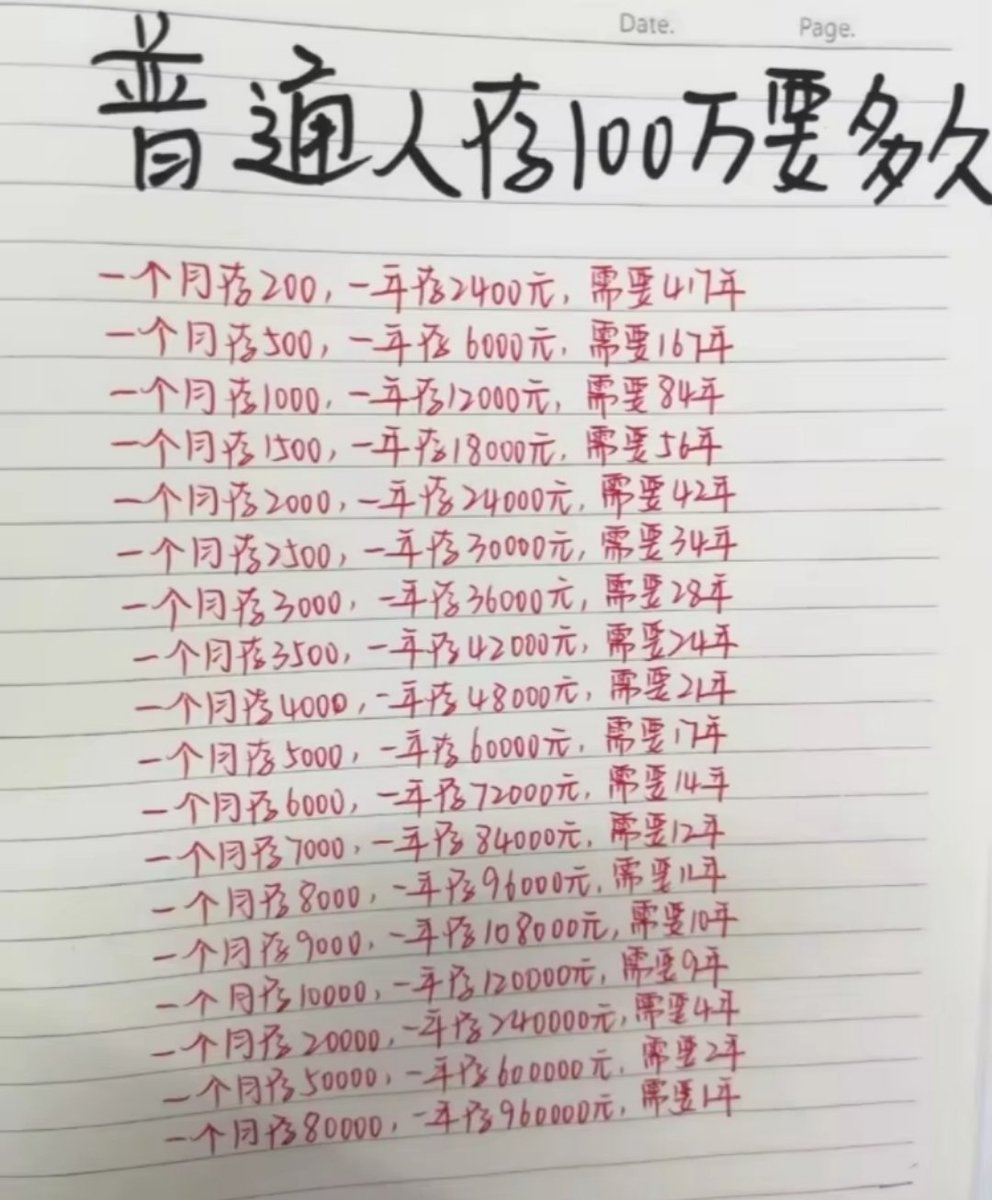 Date. Page.
普通人存100万要多久
一个月存200,一年存2400元,需要417年
一个月存500,一年存6000元,需要167年
一个月存1000,一年存12000元,需要84年
一个月存1500,一年存18000元,需要56年
一个月存2000,一年存24000元,需要42年
一个月存2500,一年存30000元,需要34年
一个月存3000,一年存36000元,需要28年
一个月存3500,一年存42000元,需要24年
一个月存4000,一年存48000元,需要21年
一个月存5000,一年存60000元,需要17年
一个月存6000,一年存72000元,需要14年
一个月存7000,一年存84000元,需要12年
一个月存8000,一年存96000元,需要11年
一个月存9000,一年存108000元,需要10年
一个月存10000,一年存120000元,需要9年
一个月存20000,一年存240000元,需要4年
一个月存50000,一年存600000元,需要2年
一个月存80000,一年存960000元,需要1年